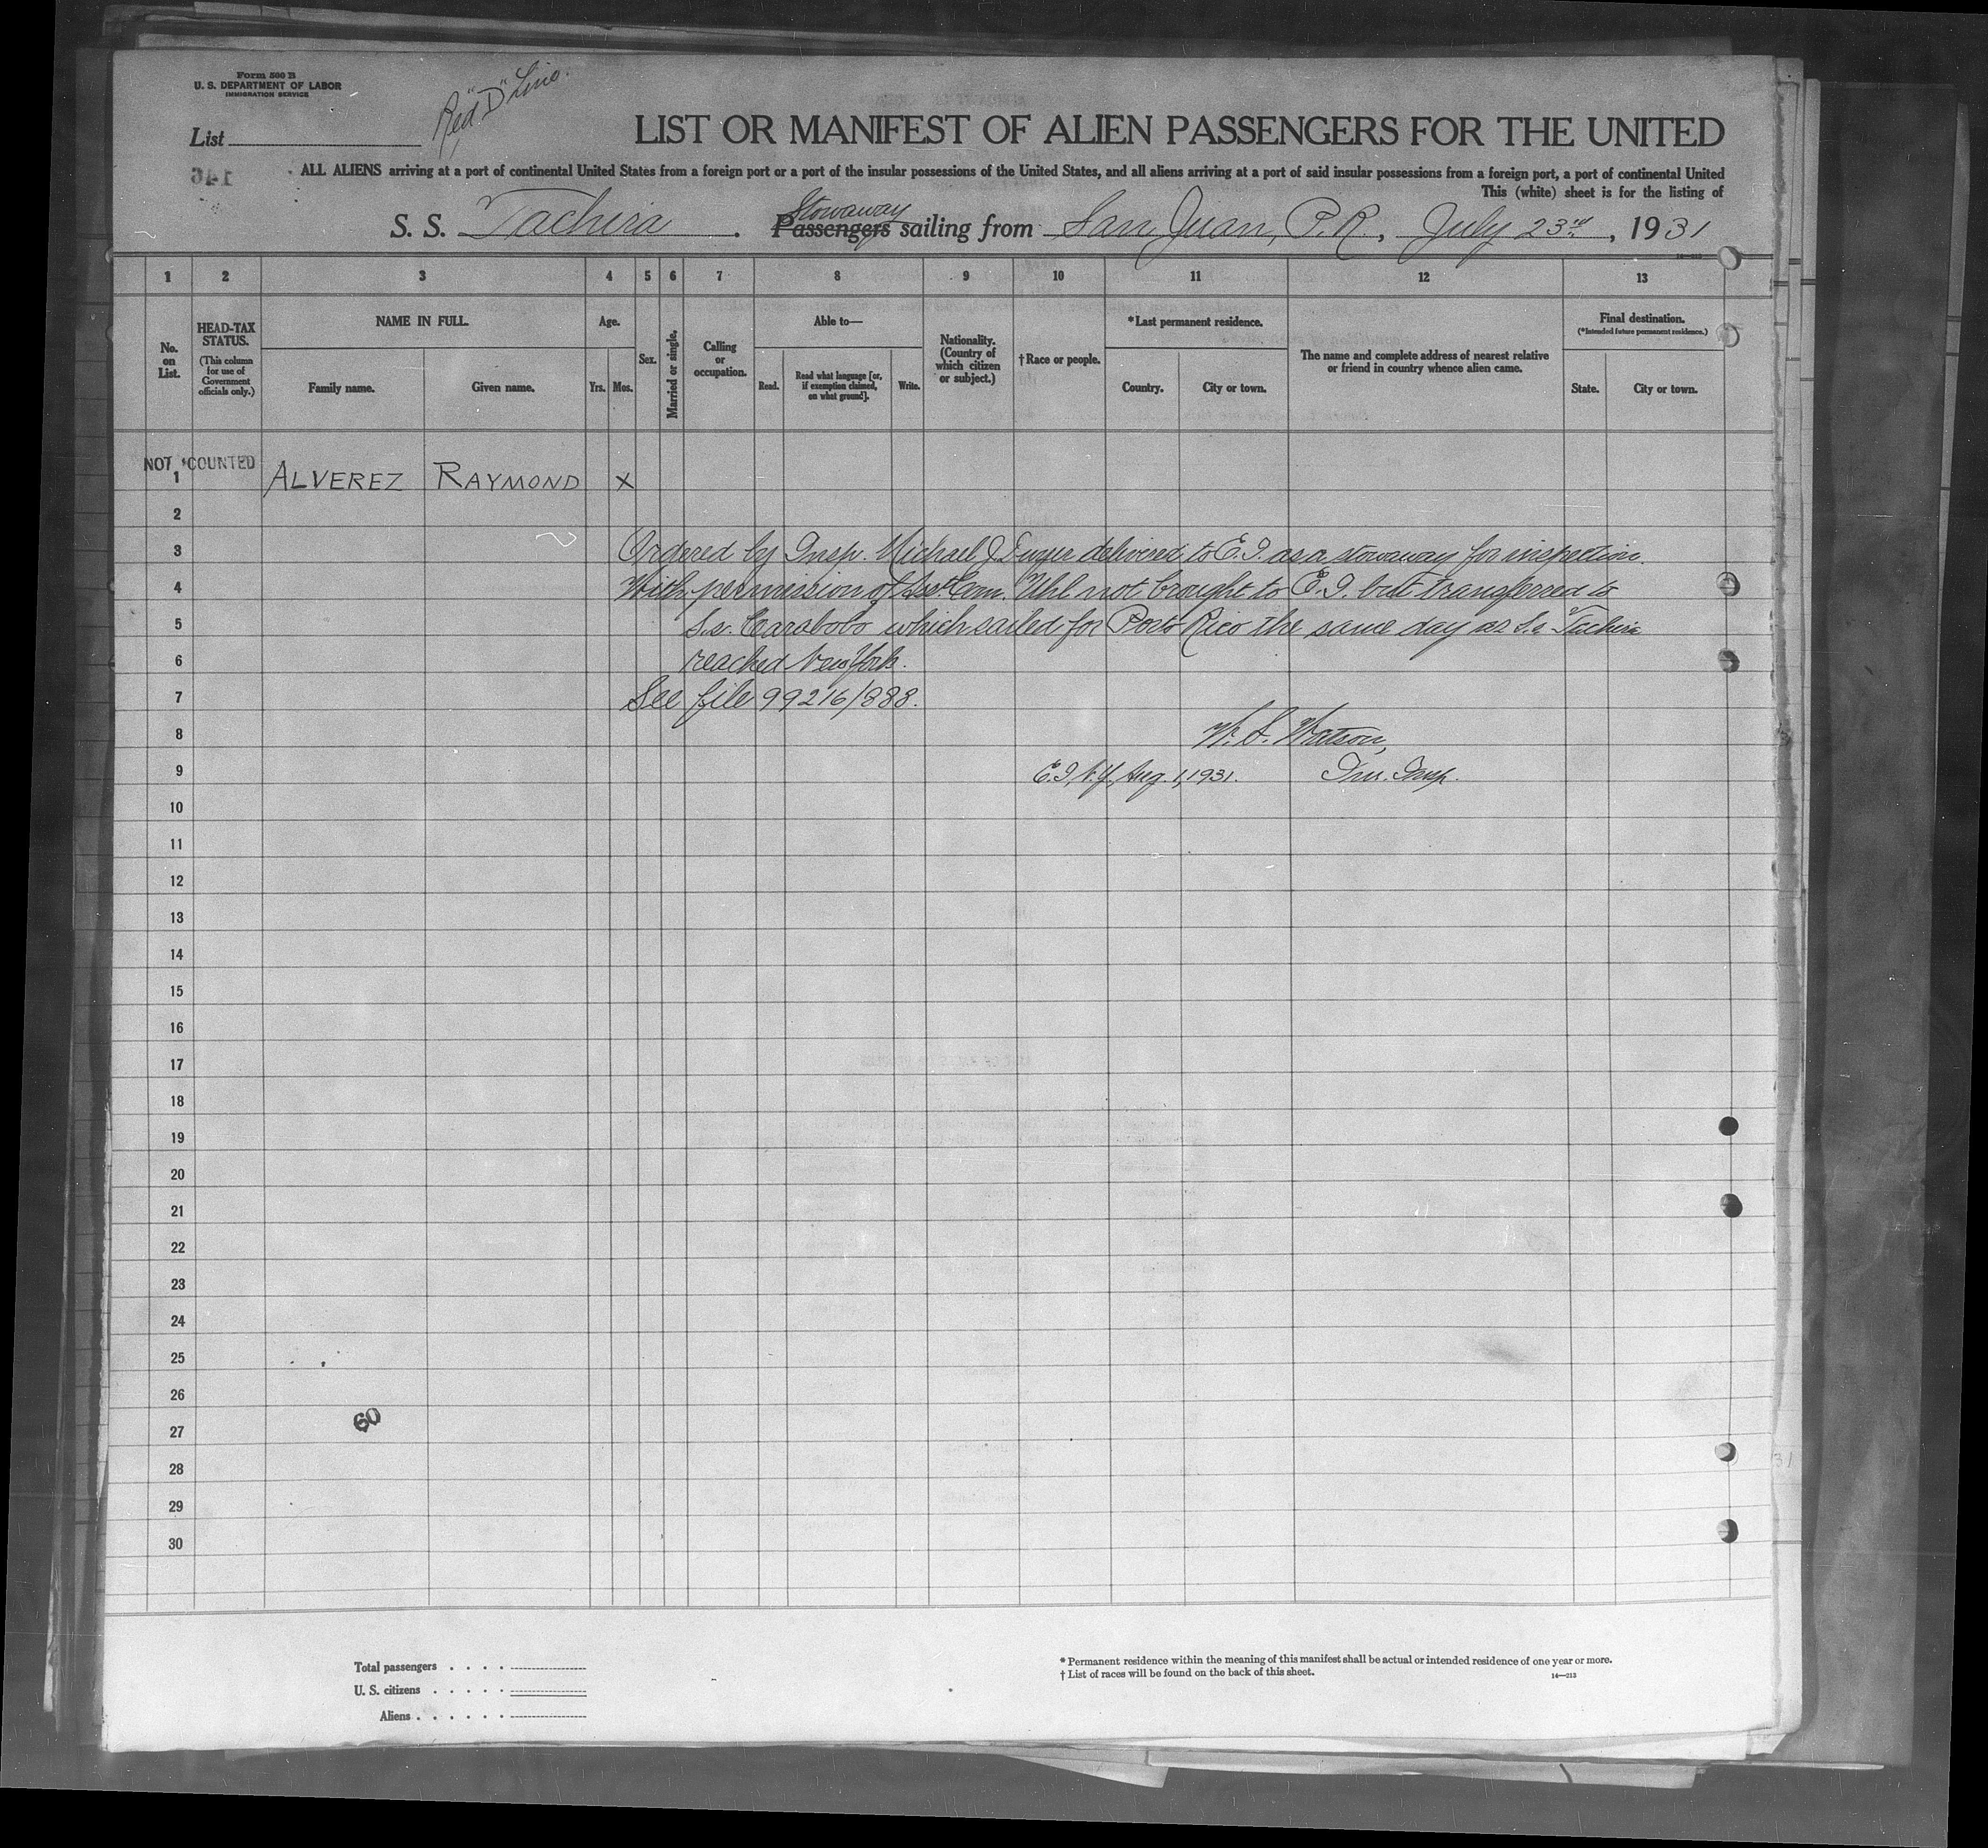 Form 500 B
U. S. DEPARTMENT OF LABOR
IMMIGRATION SERVICE
Red "D" Line.
List
LIST OR MANIFEST OF ALIEN PASSENGERS FOR THE UNITED
146
ALL ALIENS arriving at a port of continental United States from a foreign port or a port of the insular possessions of the United States, and all aliens arriving at a port of said insular possessions from a foreign port, a port of continental United
This (white) sheet is for the listing of
Stowaway
S. S. Tachira. Passengers sailing from San Juan, P.R., July 23rd, 1931
1 2 3 4 5 6 7 8 9 10 11 12 13
No. on List.
HEAD-TAX STATUS.
(This column for use of Government officials only.)
NAME IN FULL.
Family name. Given name.
Age.
Yrs. Mos.
Sex.
Married or single.
Calling or occupation.
Able to—
Read. Read what language [or, if exemption claimed, on what ground]. Write.
Nationality. (Country of which citizen or subject.)
†Race or people.
*Last permanent residence.
Country. City or town.
The name and complete address of nearest relative or friend in country whence alien came.
Final destination.
(*Intended future permanent residence.)
State. City or town.
NOT COUNTED
1 ALVEREZ RAYMOND X
2
3 Ordered by Insp. Michael J. delivered to E.I. as a stowaway for inspection.
4 With permission of Asst. Com. Uhl not brought to E.I. but transferred to
5 S.s. Carabobo which sailed for Porto Rico the same day as S.s. Tachira
6 reached New York.
7 See file 99216/888.
8 W. S. Watson,
9 E.I., N.Y., Aug. 1, 1931. Imm. Insp.
10
11
12
13
14
15
16
17
18
19
20
21
22
23
24
25
26
27
60
28
29
30
Total passengers
U. S. citizens
Aliens
* Permanent residence within the meaning of this manifest shall be actual or intended residence of one year or more.
† List of races will be found on the back of this sheet.
14—213